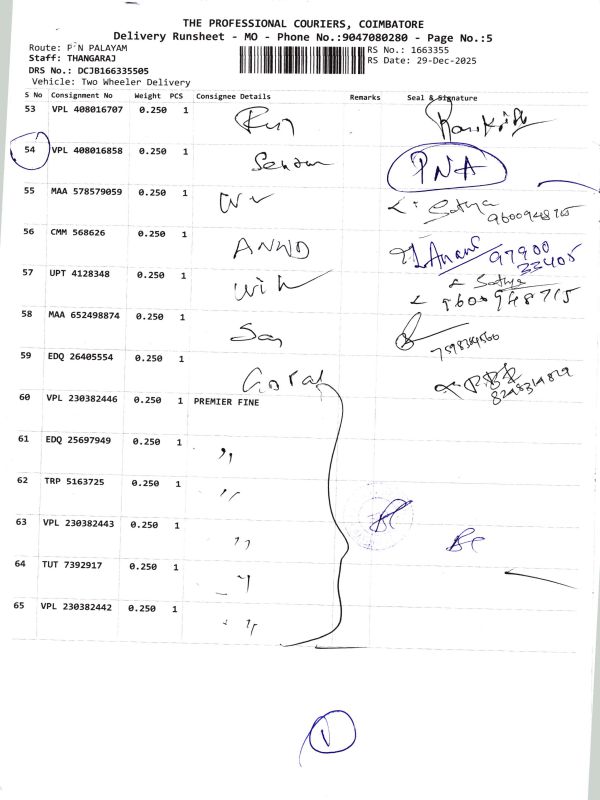 THE PROFESSIONAL COURIERS, COIMBATORE
Delivery Runsheet - MO - Phone No.:9047080280 - Page No.:5
Route: P N PALAYAM
RS No.: 1663355
Staff: THANGARAJ
RS Date: 29-Dec-2025
DRS No.: DCJB166335505
Vehicle: Two Wheeler Delivery
S No Consignment No Weight PCS Consignee Details Remarks Seal & Signature
53 VPL 408016707 0.250 1
54 VPL 408016858 0.250 1 PNA
55 MAA 578579059 0.250 1 Sathya
56 CMM 568626 0.250 1 ANWD Anand 97900
33405
57 UPT 4128348 0.250 1 Sathya
9600948715
58 MAA 652498874 0.250 1
59 EDQ 26405554 0.250 1
60 VPL 230382446 0.250 1 PREMIER FINE
61 EDQ 25697949 0.250 1 ,,
62 TRP 5163725 0.250 1 ,,
63 VPL 230382443 0.250 1 ,,
64 TUT 7392917 0.250 1 ,,
65 VPL 230382442 0.250 1 ,,